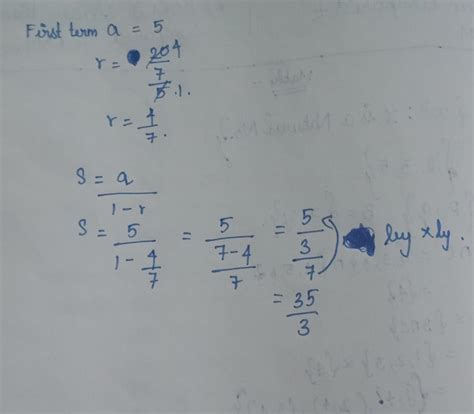 First term a = 5
r = 20 4 / 7 / 5 . 1.
r = 4/7.
S = a / 1-r
S = 5 / 1 - 4/7 = 5 / 7-4 / 7 = 5 / 3 / 7 by x ly.
= 35/3